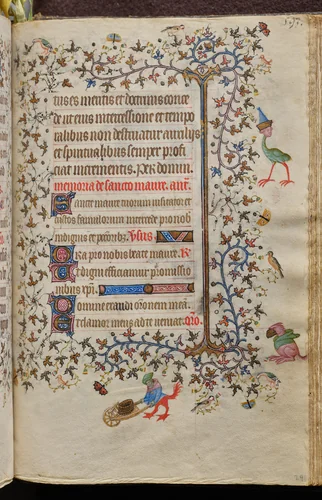 tus es mentis et dominus conce
de ut eius intercessione et tempo
ralibus non destituatur auxiliis
et spiritualibus semper profi
ciat incrementis. Per domin.
memoria de sancto mauro. ant.
Sancte maure tuorum
intercede pro nob
indignis et peccorib3 Vsus
Ora pro nobis beate maure. R
Vt digni efficiamur promissio
nibus xpi.
Domine exaudi oronem mea.
Et clamor meus ad te veniat. Oro.